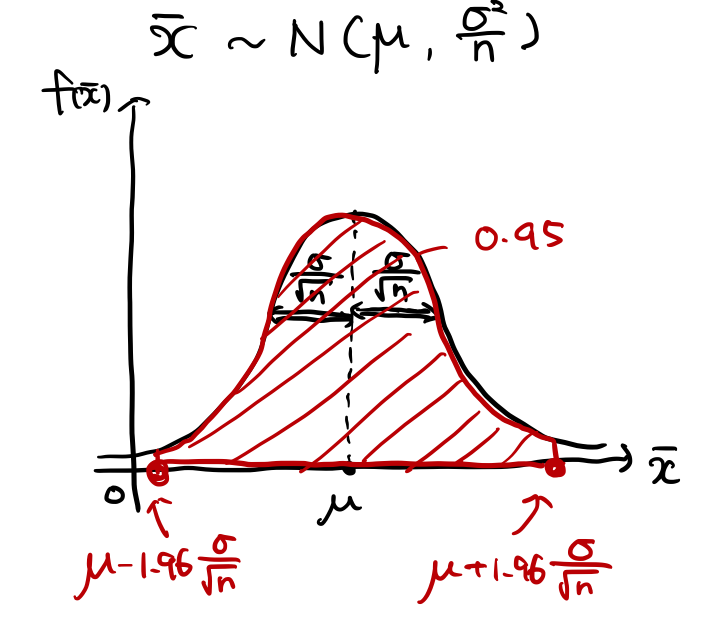 x̄ ~ N(μ, σ²/n)
f(x̄)
0.95
σ/√n σ/√n
x̄
0
μ
μ-1.96 σ/√n
μ+1.96 σ/√n